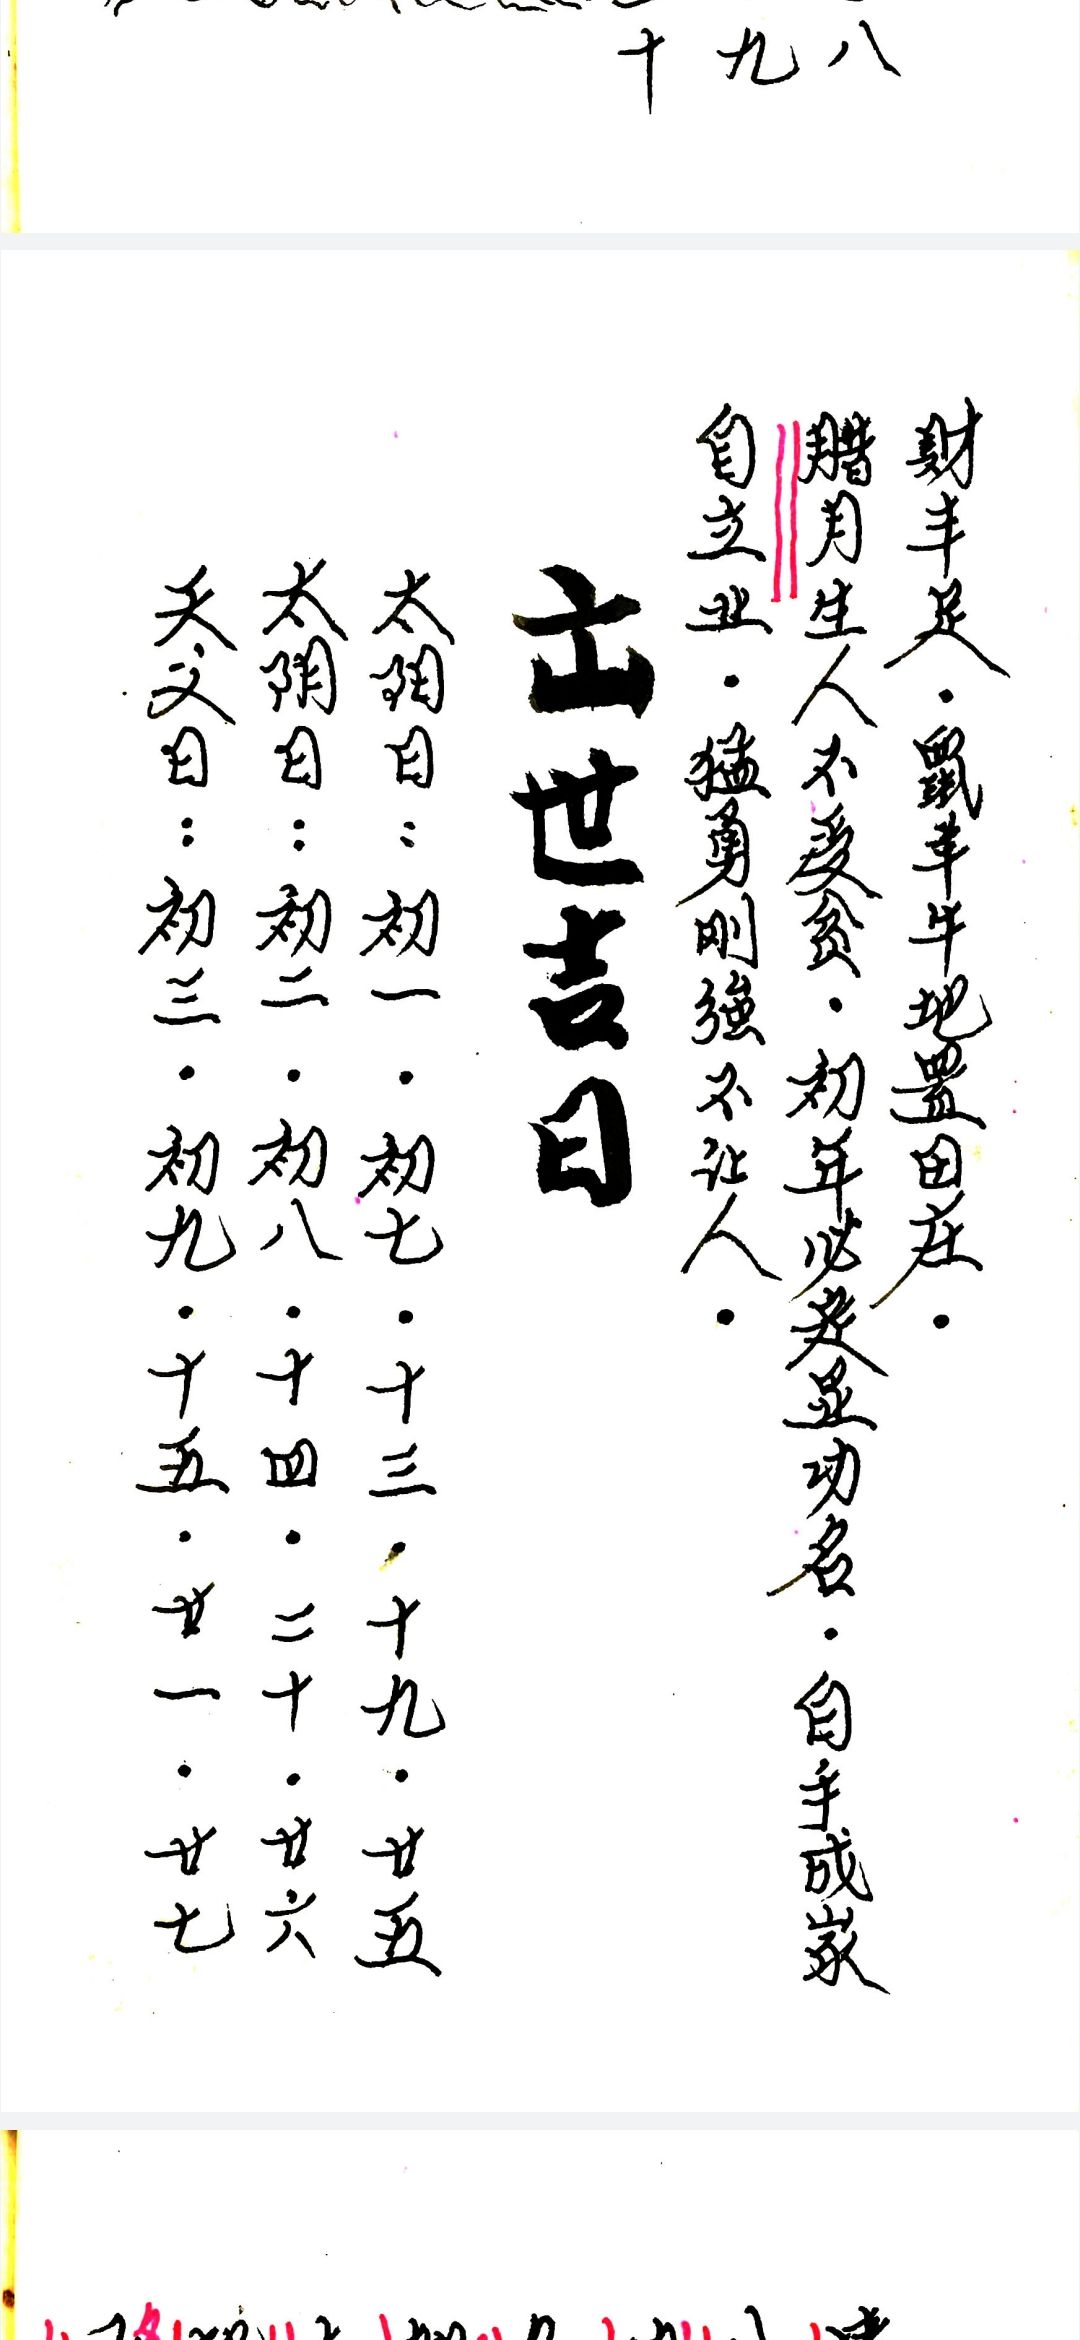 八
九
十
财丰足．骡羊牛地置田庄．
腊月生人不受贫．初年必发显功名．自手成家
自立业．猛勇刚強不让人．
出世吉日
太阳日：初一．初七．十三．十九．廿五
太阴日：初二．初八．十四．二十．廿六
天父日：初三．初九．十五．廿一．廿七